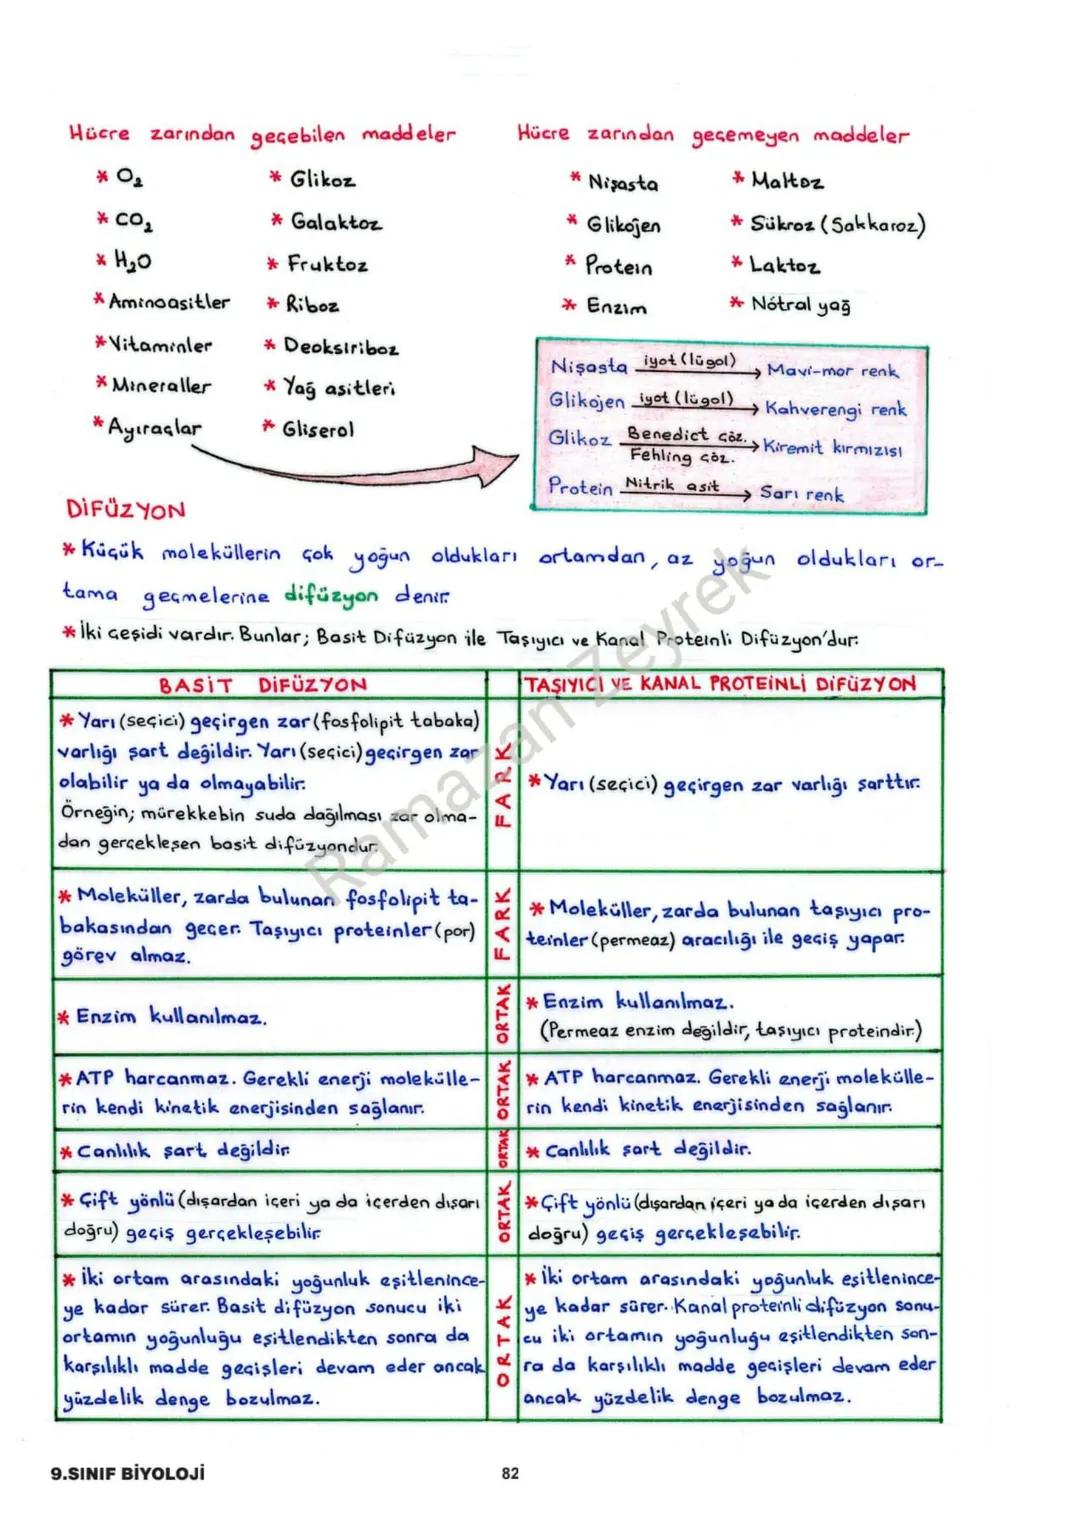 Hücre zarından geçebilen maddeler
* O₂
* CO₂
* H₂O
* Aminoasitler
* Vitaminler
* Mineraller
* Ayıraçlar
* Glikoz
* Galaktoz
* Fruktoz
* Riboz
* Deoksiriboz
* Yağ asitleri
* Gliserol
Hücre zarından geçemeyen maddeler
* Nişasta
* Glikojen
* Protein
* Enzim
* Maltoz
* Sükroz (Sakkaroz)
* Laktoz
* Nötral yağ
Nişasta iyot (lügol) → Mavi-mor renk
Glikojen iyot (lügol) → Kahverengi renk
Glikoz Benedict çöz. Fehling çöz. → Kiremit kırmızısı
Protein Nitrik asit → Sarı renk
DİFÜZYON
* Küçük moleküllerin çok yoğun oldukları ortamdan, az yoğun oldukları or-
tama geçmelerine difüzyon denir.
* İki çeşidi vardır. Bunlar; Basit Difüzyon ile Taşıyıcı ve Kanal Proteinli Difüzyon'dur.
BASİT DİFÜZYON
TAŞIYICI VE KANAL PROTEİNLİ DİFÜZYON
* Yarı (seçici) geçirgen zar (fosfolipit tabaka)
varlığı şart değildir. Yarı (seçici) geçirgen zar
olabilir ya da olmayabilir.
Örneğin; mürekkebin suda dağılması zar olma-
dan gerçekleşen basit difüzyondur.
FARK
* Yarı (seçici) geçirgen zar varlığı şarttır.
* Moleküller, zarda bulunan fosfolipit ta-
bakasından geçer. Taşıyıcı proteinler (por)
görev almaz.
FARK
* Moleküller, zarda bulunan taşıyıcı pro-
teinler (permeaz) aracılığı ile geçiş yapar.
* Enzim kullanılmaz.
ORTAK
* Enzim kullanılmaz.
(Permeaz enzim değildir, taşıyıcı proteindir.)
* ATP harcanmaz. Gerekli enerji molekülle-
rin kendi kinetik enerjisinden sağlanır.
ORTAK
* ATP harcanmaz. Gerekli enerji molekülle-
rin kendi kinetik enerjisinden sağlanır.
* Canlılık şart değildir.
ORTAK
* Canlılık şart değildir.
* Çift yönlü (dışardan içeri ya da içerden dışarı
doğru) geçiş gerçekleşebilir.
ORTAK
* Çift yönlü (dışardan içeri ya da içerden dışarı
doğru) geçiş gerçekleşebilir.
* İki ortam arasındaki yoğunluk eşitlenince-
ye kadar sürer. Basit difüzyon sonucu iki
ortamın yoğunluğu eşitlendikten sonra da
karşılıklı madde geçişleri devam eder ancak
yüzdelik denge bozulmaz.
ORTAK
* İki ortam arasındaki yoğunluk eşitlenince-
ye kadar sürer. Kanal proteinli difüzyon sonu-
cu iki ortamın yoğunluğu eşitlendikten son-
ra da karşılıklı madde geçişleri devam eder
ancak yüzdelik denge bozulmaz.
Ramazan Zeyrek
9.SINIF BİYOLOJİ
82